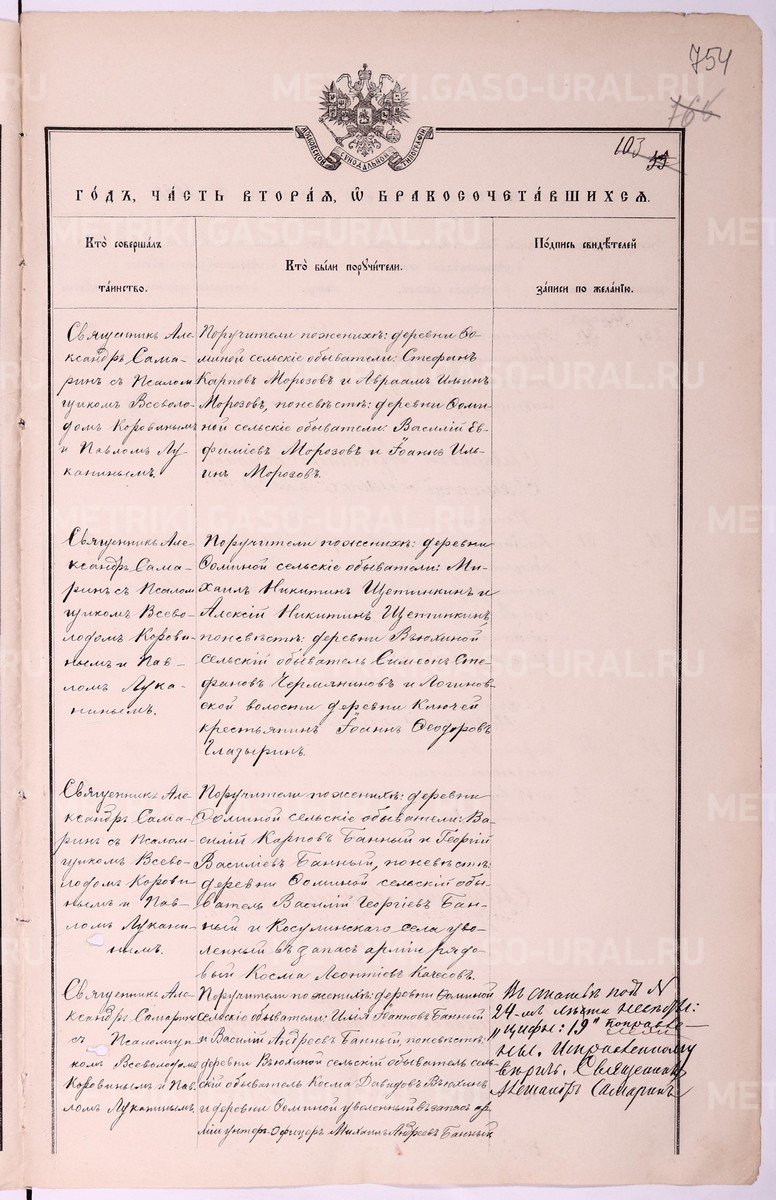 754
766
103
55
АѴНОВСКОЙ СѴНОДАЛЬНОЙ ТИПОГРАФІИ
ГО́ДЪ, ЧА́СТЬ ВТОРА́Я, Ѡ҆ БРАКОСОЧЕТА́ВШИХСЯ.
Кто̀ соверша́лъ
та́инство.
Кто̀ бы́ли порꙋчи́тели.
По́дпись свидѣ́телей
за́писи по жела́нїю.
Священникъ Але-
ксандръ Сама-
ринъ съ Псалом
щикомъ Всеволо-
домъ Коровинымъ
и Павломъ Лу
канинымъ.
Поручители по женихѣ: деревни Ѳо-
миной сельскіе обыватели: Стефанъ
Карповъ Морозовъ и Авраамъ Ильинъ
Морозовъ, по невѣстѣ: деревни Ѳоми-
ной сельскіе обыватели: Василій Ев-
фиміевъ Морозовъ и Іоаннъ Иль-
инъ Морозовъ.
Священникъ Але-
ксандръ Сама-
ринъ съ Псалом
щикомъ Всево-
лодомъ Корови-
нымъ и Пав-
ломъ Лука-
нинымъ.
Поручители по женихѣ: деревни
Ѳоминой сельскіе обыватели: Ми-
хаилъ Никитинъ Щетинкинъ и
Алексій Никитинъ Щетинкинъ,
по невѣстѣ: деревни Вьюхиной
сельскій обыватель Симеонъ Сте-
фановъ Чермяниновъ и Логинов-
ской волости деревни Ключей
крестьянинъ Іоаннъ Ѳеодоровъ
Глазыринъ.
Священникъ Але-
ксандръ Сама-
ринъ съ Псалом-
щикомъ Всево-
лодомъ Корови-
нымъ и Пав-
ломъ Лукани-
нымъ.
Поручители по женихѣ: деревни
Ѳоминой сельскіе обыватели: Ва-
силій Карповъ Банный и Георгій
Василіевъ Банный, по невѣстѣ:
деревни Ѳоминой сельскій обы-
ватель Василій Георгіевъ Бан-
ный и Косулинскаго села уво-
ленный въ запасъ арміи рядо-
вый Косма Леонтіевъ Качесовъ.
Священникъ Але-
ксандръ Самаринъ
съ Псаломщи-
комъ Всеволодомъ
Коровинымъ и Пав-
ломъ Луканинымъ.
Поручители по женихѣ: деревни Ѳоминой
сельскіе обыватели: Илія Іоанновъ Банный
и Василій Андреевъ Банный, по невѣстѣ:
деревни Вьюхиной сельскій обыватель сель-
скій обыватель Косма Давидовъ Вьюхинъ
и деревни Ѳоминой уволенный въ запасъ ар-
міи унтеръ-офицеръ Михаилъ Андреевъ Банный
Въ статьѣ подъ №
24-мъ лѣта невѣсты:
"цифы: 19" поправле-
ны. Исправленному
вѣрить. Священникъ
Александръ Самаринъ
METRIKI.GASO-URAL.RU